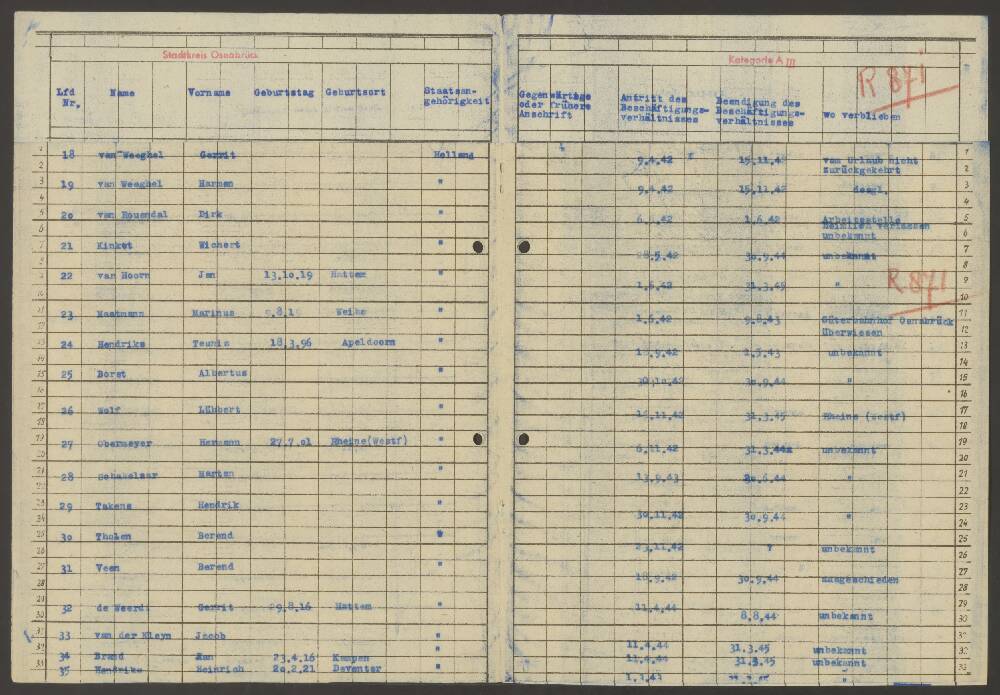 Stadtkreis Osnabrück
Kategorie A III
R 871
Lfd Nr. Name Vorname Geburtstag Geburtsort Staatsangehörigkeit
Gegenwärtige oder frühere Anschrift Antritt des Beschäftigungsverhältnisses Beendigung des Beschäftigungsverhältnisses wo verblieben
18 van Weeghel Gerrit Holland 9.4.42 15.11.4 vom Urlaub nicht
zurückgekehrt
19 van Weeghel Harmen " 9.4.42 15.11.42 desgl.
20 van Rouendal Dirk " 6.6.42 1.6.42 Arbeitsstelle
heimlich verlassen
unbekannt
21 Kinket Wichert " 8.5.42 30.9.44 unbekannt
22 van Hoorn Jan 13.10.19 Hattem " 1.6.42 31.3.45 "
R 871
23 Maatmann Marinus .8.1 Weihe " 1.6.42 9.8.43 Güterbahnhof Osnabrück
überwiesen
24 Hendriks Teunis 18.3.96 Apeldoorn " 1.9.42 1.5.43 unbekannt
25 Borst Albertus " 30.10.42 30.9.44 "
26 Wolf Lübbert " 12.11.42 31.3.45 Rheine (Westf)
27 Obermeyer Hermann 27.7.01 Rheine(Westf) " 6.11.42 31.3.44x unbekannt
28 Schakelaar Marten " 13.9.43 20.6.44 "
29 Takens Hendrik " 30.11.42 30.9.44 "
30 Tholen Berend " 23.11.42 ? unbekannt
31 Veen Berend " 18.9.42 30.9.44 ausgeschieden
32 de Weerd Gerrit 29.8.16 Hattem " 11.4.44 8.8.44 unbekannt
33 van der Kleyn Jacob " 11.4.44 31.3.45 unbekannt
34 Brand Jan 23.4.16 Kampen " 11.4.44 31.3.45 unbekannt
35 Hendriks Heinrich 20.2.21 Deventer " 1.1.43 "